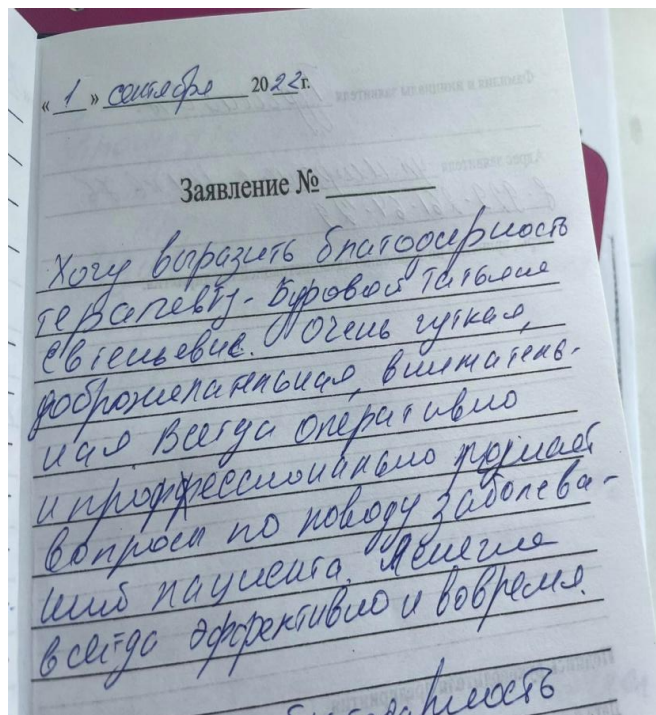 « 1 » сентября 2022 г.
Заявление №
Хочу выразить благодарность
терапевту - Буровой Татьяне
Евгеньевне. Очень чуткая,
доброжелательная, вниматель-
ная. Всегда оперативно
и профессионально решает
вопросы по поводу заболева-
ний пациента.
всегда эффективно и вовремя.
благодарность